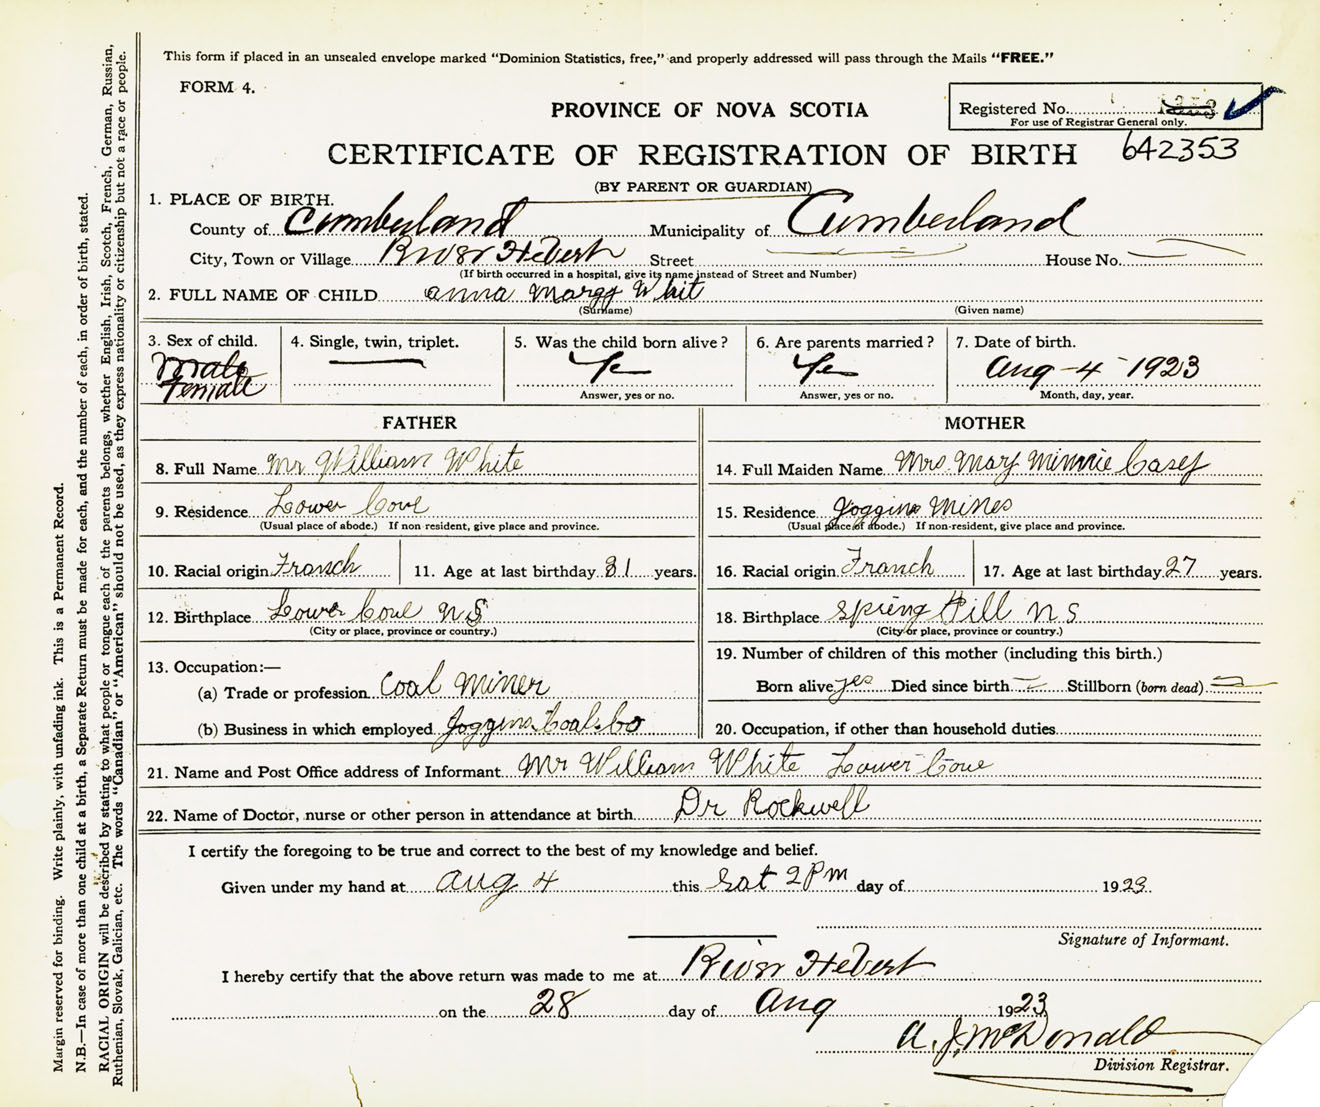 This form if placed in an unsealed envelope marked "Dominion Statistics, free," and properly addressed will pass through the Mails "FREE."
FORM 4.
PROVINCE OF NOVA SCOTIA
Registered No.
For use of Registrar General only.
CERTIFICATE OF REGISTRATION OF BIRTH 642353
(BY PARENT OR GUARDIAN)
1. PLACE OF BIRTH.
County of Cumberland Municipality of Cumberland
City, Town or Village River Hebert Street House No.
(If birth occurred in a hospital, give its name instead of Street and Number)
2. FULL NAME OF CHILD anna Margy Whit
(Surname) (Given name)
3. Sex of child. 4. Single, twin, triplet. 5. Was the child born alive? 6. Are parents married? 7. Date of birth.
Male Ye Ye Aug-4-1923
Female
Answer, yes or no. Answer, yes or no. Month, day, year.
FATHER MOTHER
8. Full Name Mr William White 14. Full Maiden Name Mrs. Mary Minnie Casey
9. Residence Lower Cove 15. Residence Joggins Mines
(Usual place of abode.) If non-resident, give place and province. (Usual place of abode.) If non-resident, give place and province.
10. Racial origin Franch 11. Age at last birthday 31 years. 16. Racial origin Franch 17. Age at last birthday 27 years.
12. Birthplace Lower Cove N S 18. Birthplace Spring Hill N S
(City or place, province or country.) (City or place, province or country.)
13. Occupation:— 19. Number of children of this mother (including this birth.)
(a) Trade or profession Coal Miner Born alive yes Died since birth Stillborn (born dead)
(b) Business in which employed Joggins Coal Co 20. Occupation, if other than household duties
21. Name and Post Office address of Informant Mr William White Lower Cove
22. Name of Doctor, nurse or other person in attendance at birth Dr Rockwell
I certify the foregoing to be true and correct to the best of my knowledge and belief.
Given under my hand at Aug 4 this Sat 2 Pm day of 1923
Signature of Informant.
I hereby certify that the above return was made to me at River Hebert
on the 28 day of Aug 1923
A. J. McDonald
Division Registrar.
Margin reserved for binding. Write plainly, with unfading ink. This is a Permanent Record.
N.B.—In case of more than one child at a birth, a Separate Return must be made for each, and the number of each, in order of birth, stated.
RACIAL ORIGIN will be described by stating to what people or tongue each of the parents belongs, whether English, Irish, Scotch, French, German, Russian,
Ruthenian, Slovak, Galician, etc. The words "Canadian" or "American" should not be used, as they express nationality or citizenship but not a race or people.